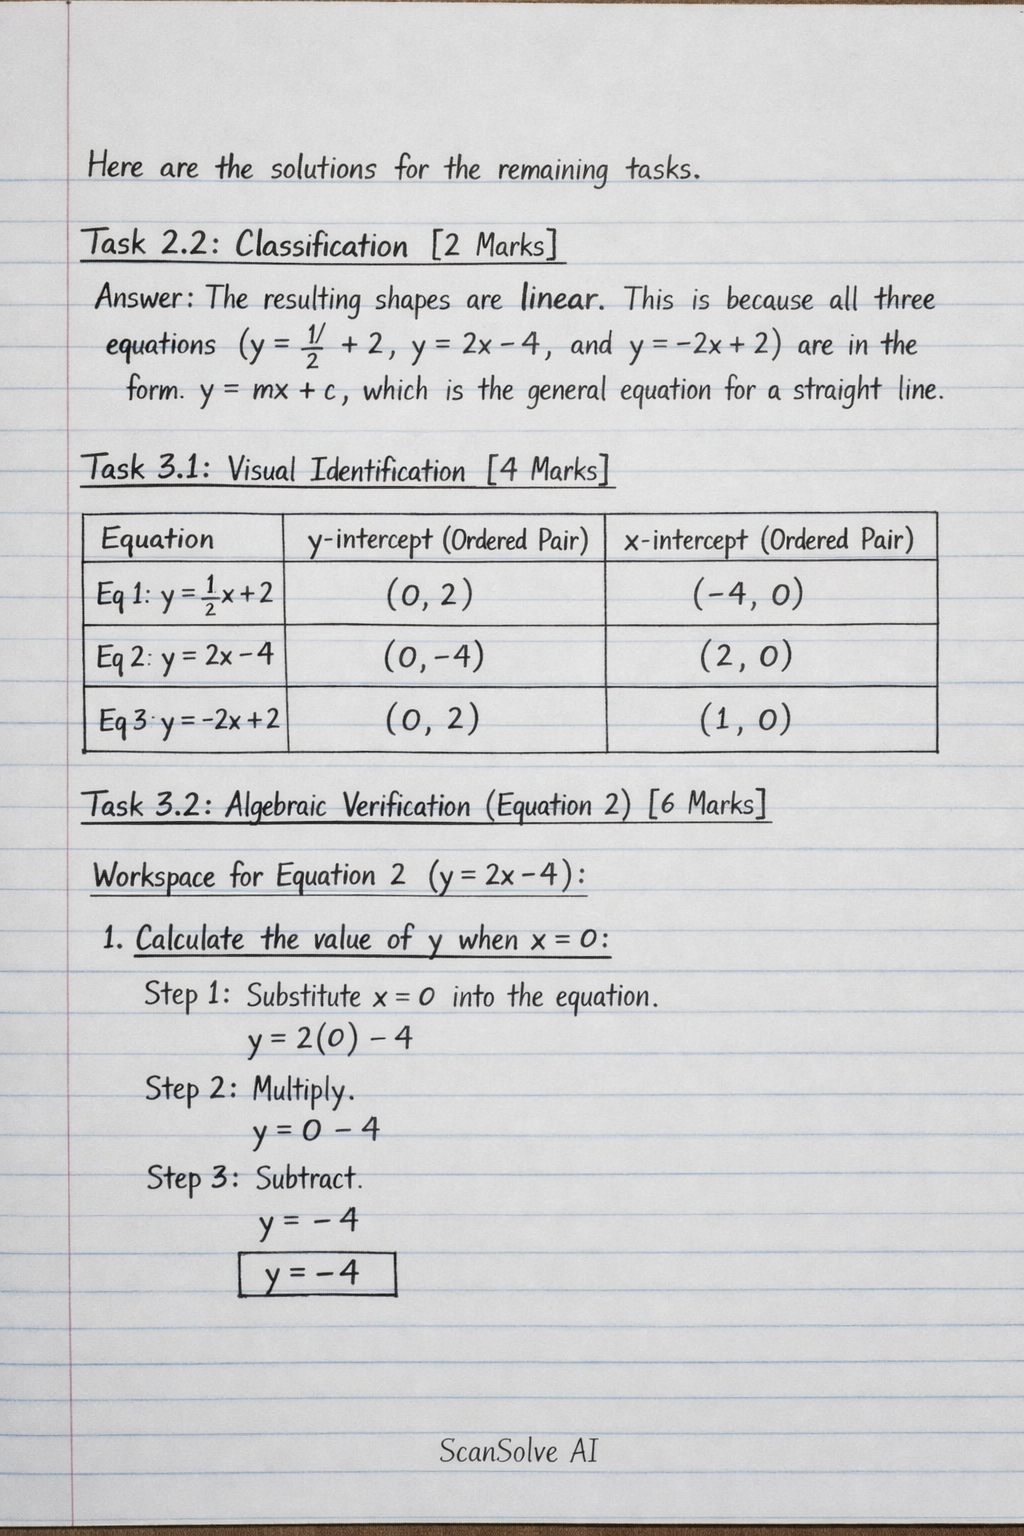 Here are the solutions for the remaining tasks.
Task 2.2: Classification [2 Marks]
Answer: The resulting shapes are linear. This is because all three
equations (y = 1/2 + 2, y = 2x - 4, and y = -2x + 2) are in the
form. y = mx + c, which is the general equation for a straight line.
Task 3.1: Visual Identification [4 Marks]
Equation y-intercept (Ordered Pair) x-intercept (Ordered Pair)
Eq 1: y = 1/2x + 2 (0, 2) (-4, 0)
Eq 2: y = 2x - 4 (0, -4) (2, 0)
Eq 3: y = -2x + 2 (0, 2) (1, 0)
Task 3.2: Algebraic Verification (Equation 2) [6 Marks]
Workspace for Equation 2 (y = 2x - 4):
1. Calculate the value of y when x = 0:
Step 1: Substitute x = 0 into the equation.
y = 2(0) - 4
Step 2: Multiply.
y = 0 - 4
Step 3: Subtract.
y = - 4
y = -4
ScanSolve AI